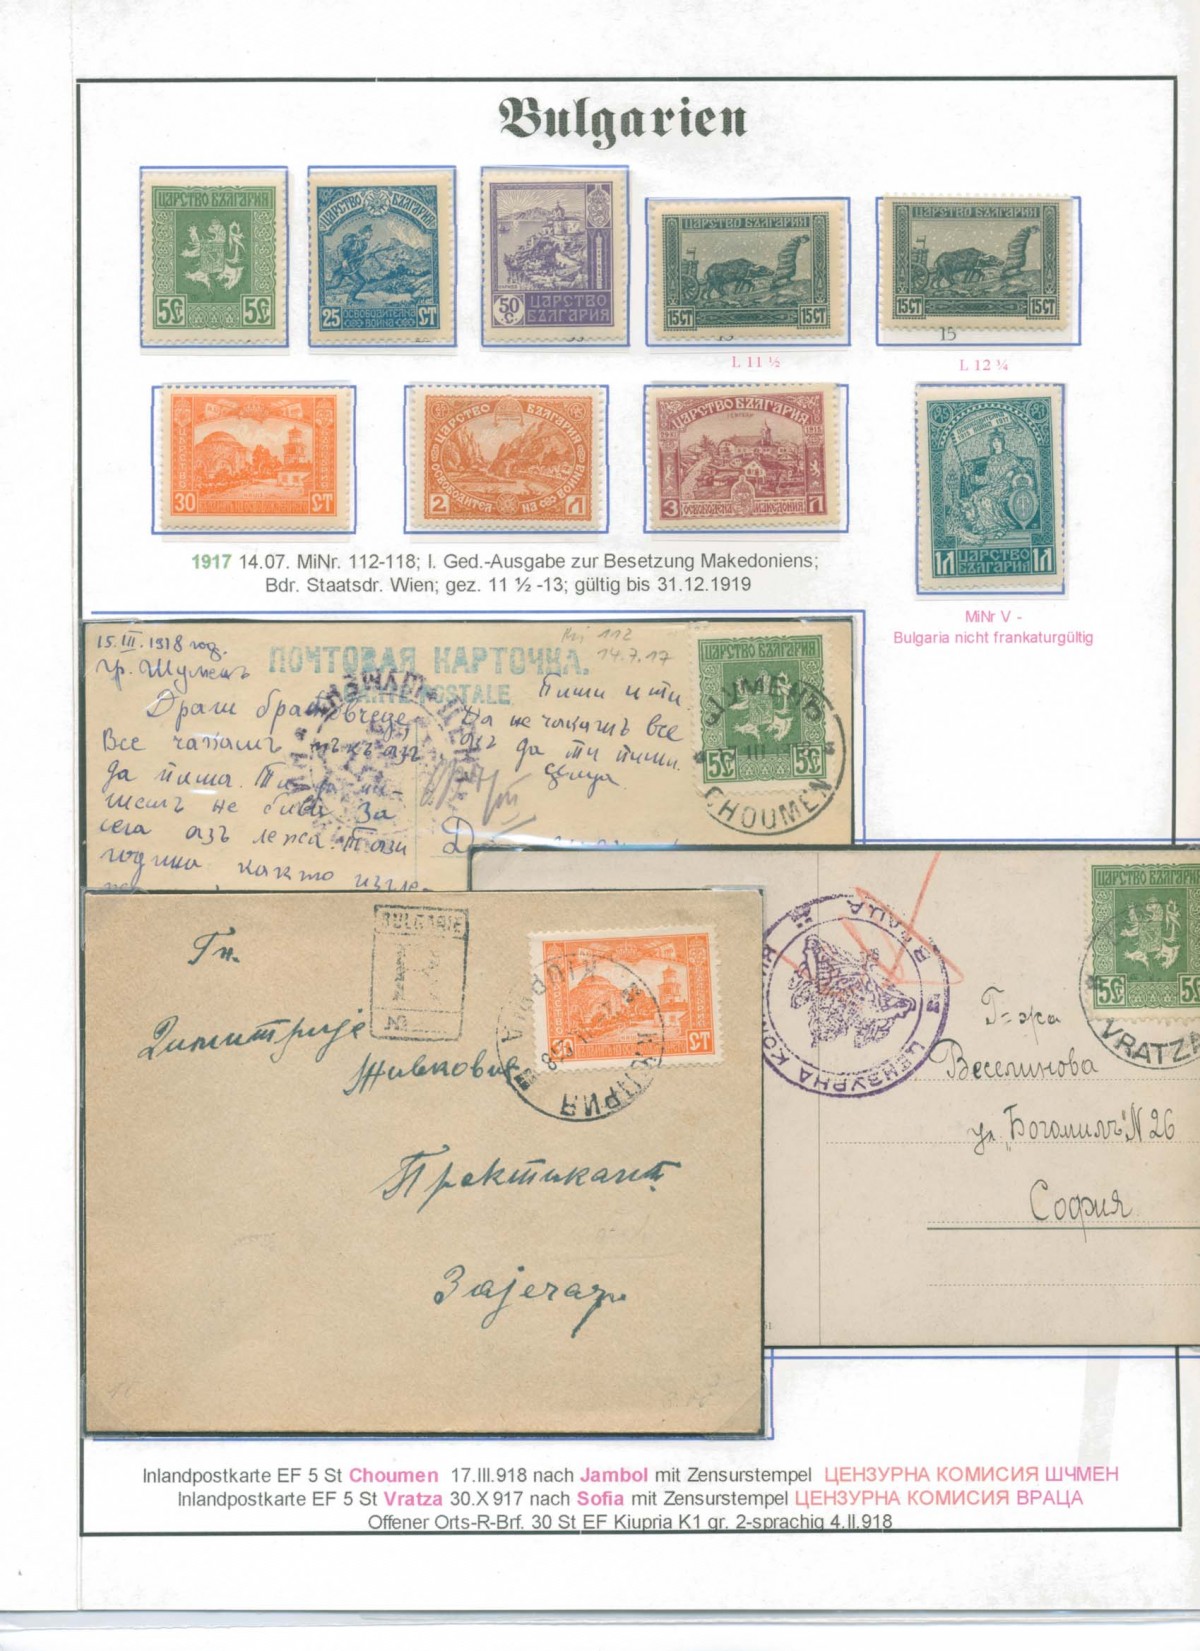 Bulgarien
ЦАРСТВО БЪЛГАРИЯ
5 5
ЦАРСТВО БЪЛГАРИЯ
25 СТ
ОСВОБОДИТЕЛНА
ВОЙНА
50 С.
ЦАРСТВО
БЪЛГАРИЯ
ЦАРСТВО БЪЛГАРИЯ
15СТ 15СТ
ЦАРСТВО БЪЛГАРИЯ
15СТ 15СТ
15
L 11 ½
L 12 ¼
30 СТ
ЦАРСТВО БЪЛГАРИЯ
2 Л
ОСВОБОДИТЕЛНА ВОЙНА
ЦАРСТВО БЪЛГАРИЯ
3 Л
МАКЕДОНИЯ
1Л ЦАРСТВО БЪЛГАРИЯ 1Л
1917 14.07. MiNr. 112-118; I. Ged.-Ausgabe zur Besetzung Makedoniens;
Bdr. Staatsdr. Wien; gez. 11 ½ -13; gültig bis 31.12.1919
MiNr V -
Bulgaria nicht frankaturgültig
15.III.1918 год.
гр. Шуменъ
Mi 112
14.7.17
ПОЧТОВАЯ КАРТОЧКА.
CARTE POSTALE
Драги братовчеде
Все чакашъ
да пиша.
не
сега азъ лежа. Тази
година както
Пиши и ти
Да не чакашъ все
азъ да ти пиша.
ЦАРСТВО БЪЛГАРИЯ
5 5
ШУМЕНЪ
III
CHOUMEN
ЦЕНЗУРНА КОМИСИЯ
ВРАЦА
ЦАРСТВО БЪЛГАРИЯ
5 5
VRATZA
Г-жа
Веселинова
ул. „Богомилъ" N 26
София
BULGARIE
R
№
Гн.
Димитрије
Живковић
Практикант
Зајечар
30 СТ
КЮПРИЯ
KIUPRIA
Inlandpostkarte EF 5 St Choumen 17.III.918 nach Jambol mit Zensurstempel ЦЕНЗУРНА КОМИСИЯ ШЧМЕН
Inlandpostkarte EF 5 St Vratza 30.X 917 nach Sofia mit Zensurstempel ЦЕНЗУРНА КОМИСИЯ ВРАЦА
Offener Orts-R-Brf. 30 St EF Kiupria K1 gr. 2-sprachig 4.II.918